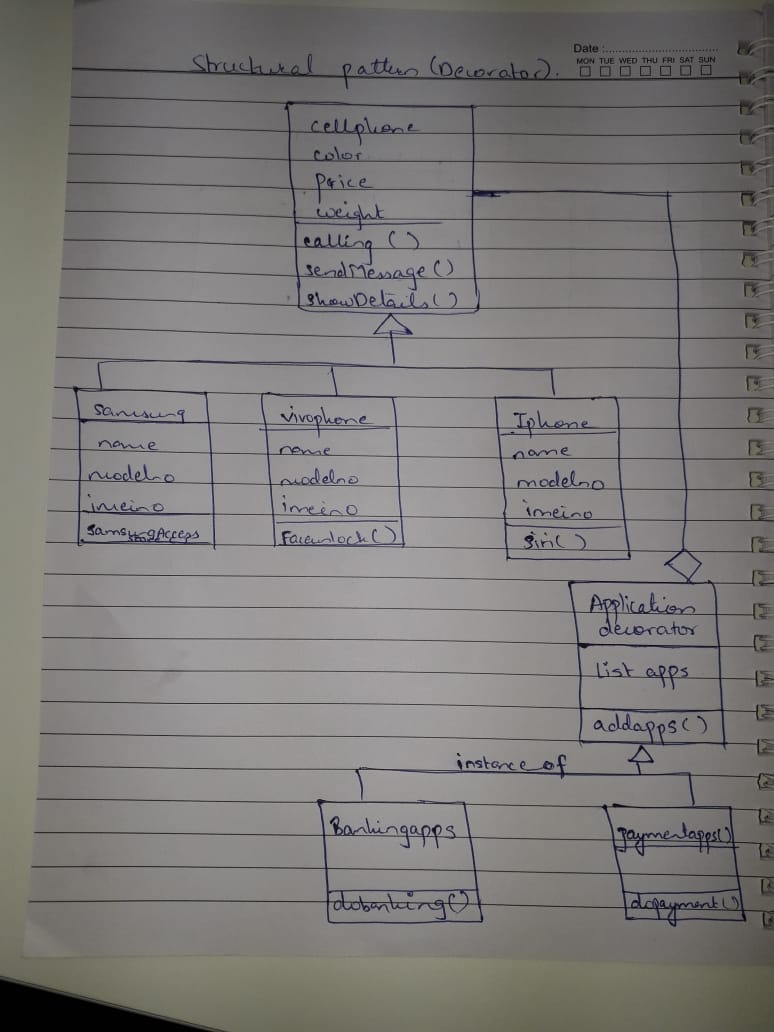 Date :
MON TUE WED THU FRI SAT SUN
Structural pattern (Decorator).
cellphone
color
Price
weight
calling ()
sendMessage()
showDetails()
samsung
name
modelno
imeino
vivophone
name
modelno
imeino
Faceunlock()
Iphone
name
modelno
imeino
Siri()
Application
decorator
List apps
addapps()
instance of
Bankingapps
dobanking()
paymentapps()
dopayment()